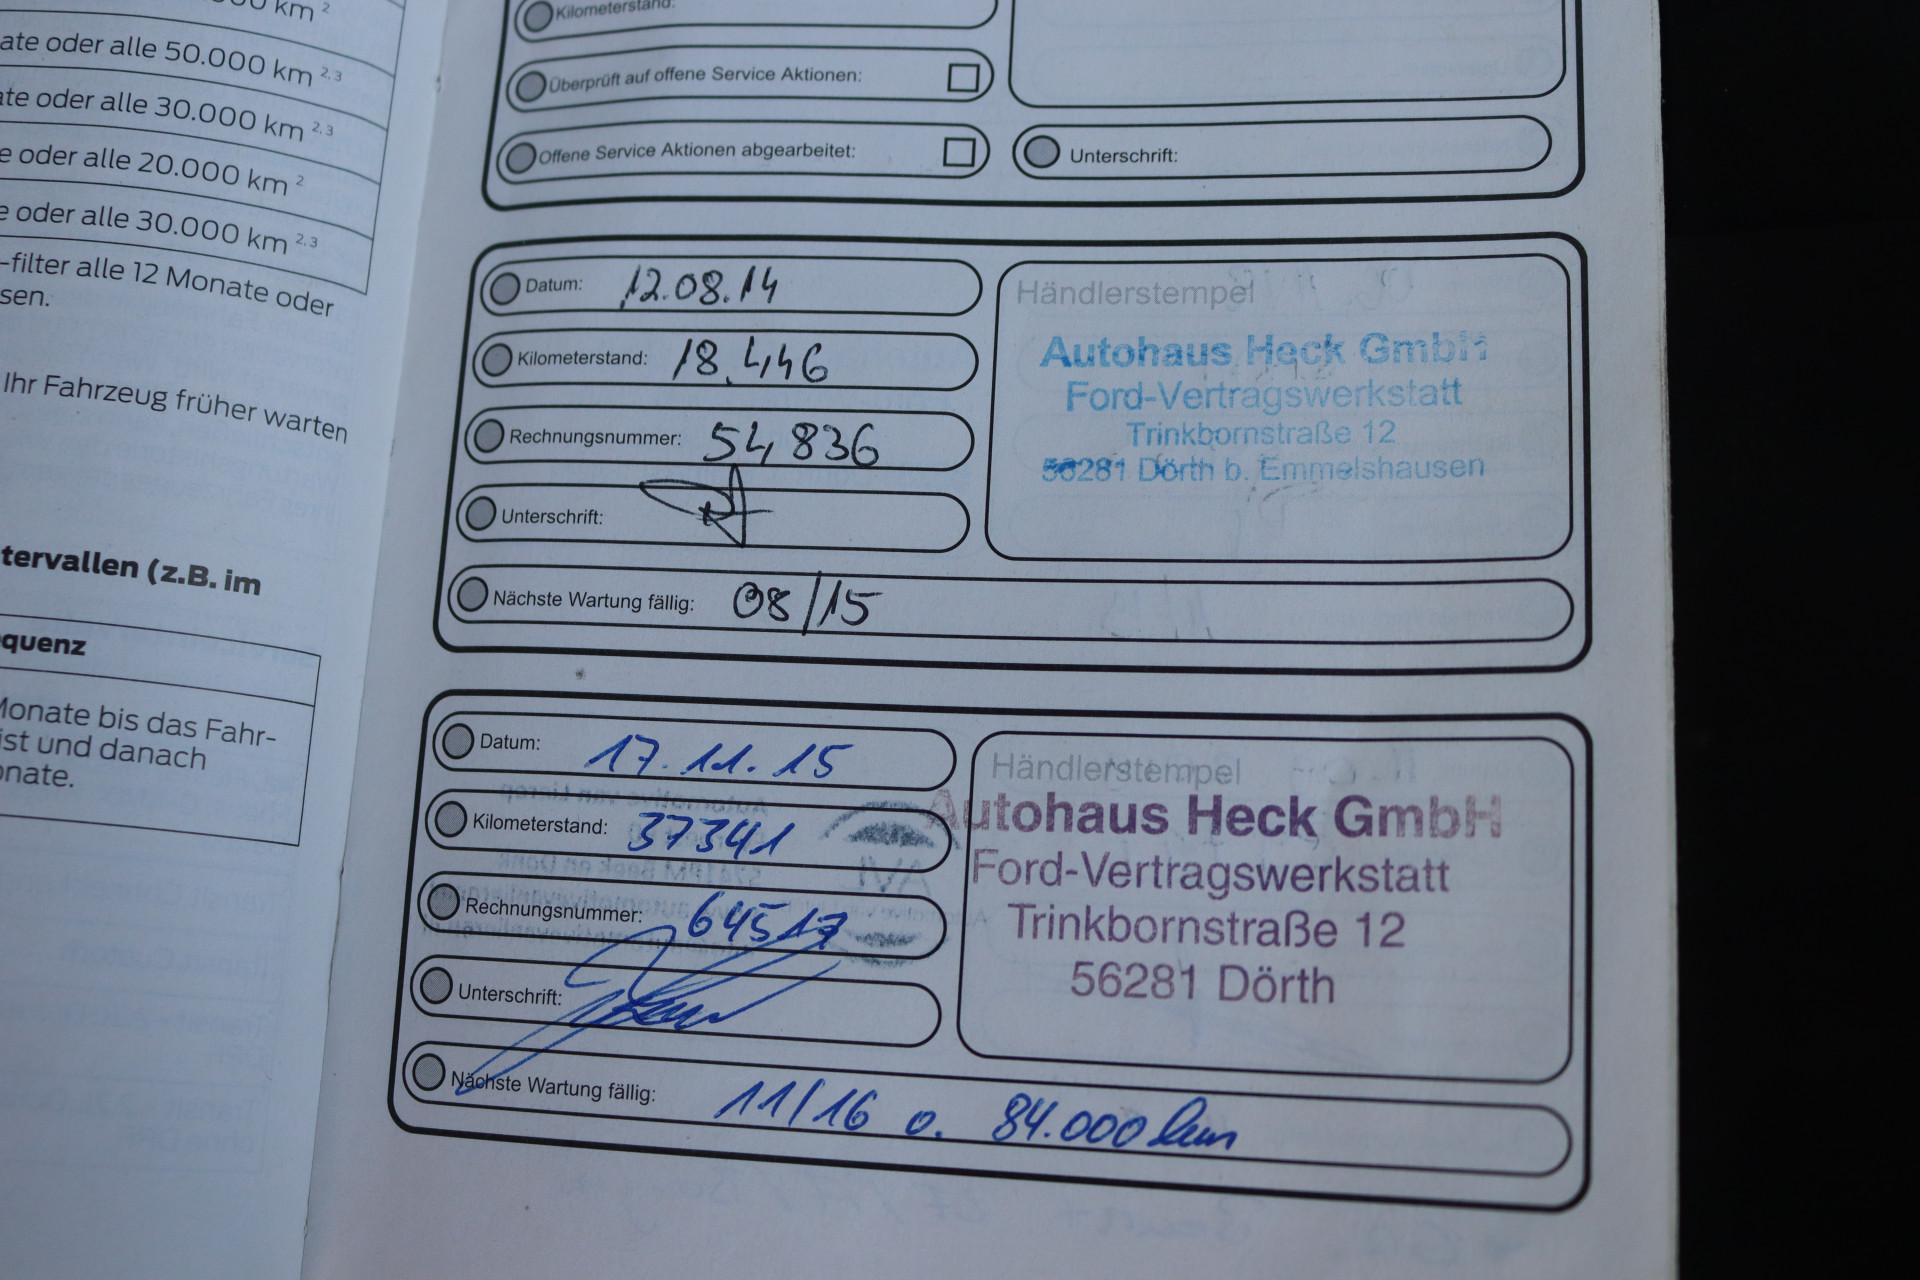 km ²
ate oder alle 50.000 km ²,³
ate oder alle 30.000 km ²,³
e oder alle 20.000 km ²
e oder alle 30.000 km ²,³
-filter alle 12 Monate oder
sen.
Ihr Fahrzeug früher warten
tervallen (z.B. im
quenz
Monate bis das Fahr-
ist und danach
onate.
Kilometerstand:
Überprüft auf offene Service Aktionen:
Offene Service Aktionen abgearbeitet:
Unterschrift:
Datum: 12.08.14
Kilometerstand: 18.446
Rechnungsnummer: 54836
Unterschrift:
Nächste Wartung fällig: 08/15
Händlerstempel
Autohaus Heck GmbH
Ford-Vertragswerkstatt
Trinkbornstraße 12
56281 Dörth b. Emmelshausen
Datum: 17.11.15
Kilometerstand: 37341
Rechnungsnummer: 64517
Unterschrift:
Nächste Wartung fällig: 11/16 o. 84.000 km
Händlerstempel
Autohaus Heck GmbH
Ford-Vertragswerkstatt
Trinkbornstraße 12
56281 Dörth